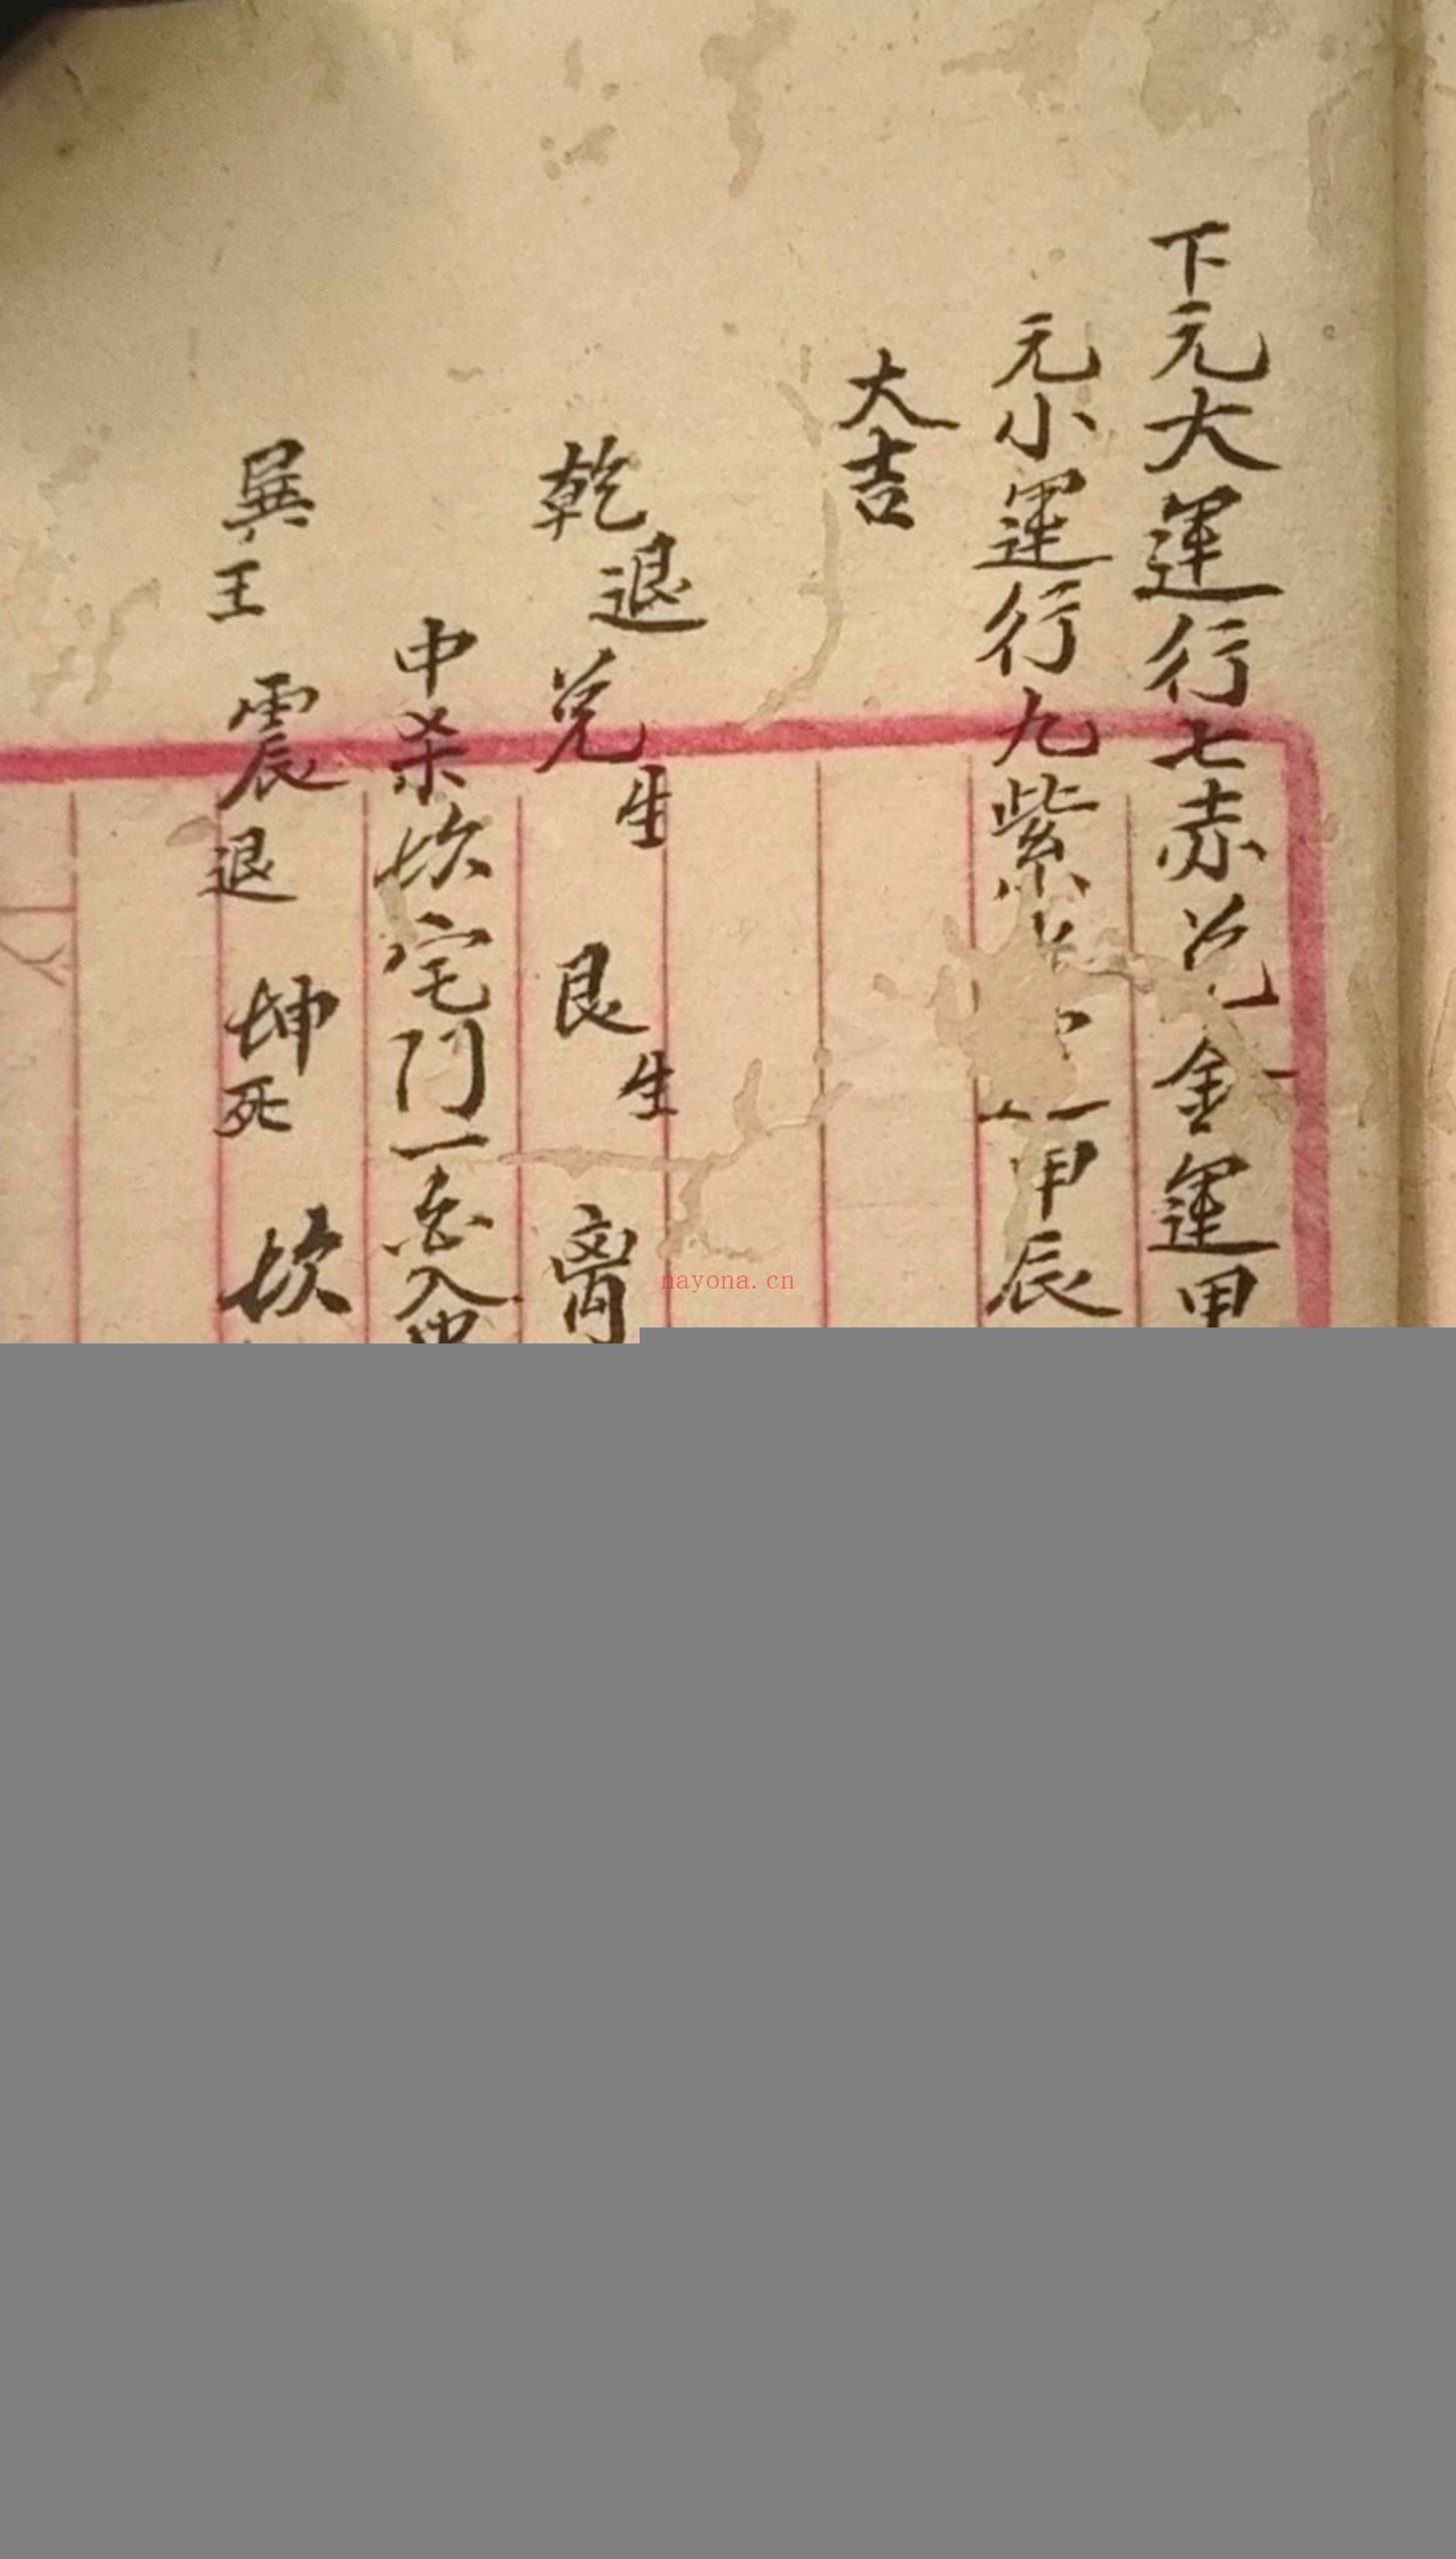 下元大運行七赤兌金運甲
元小運行九紫 甲辰
大吉
乾退 兌生 艮生 离
中杀坎宅門一白入中
巽王 震退 坤死 坎
nayona.cn